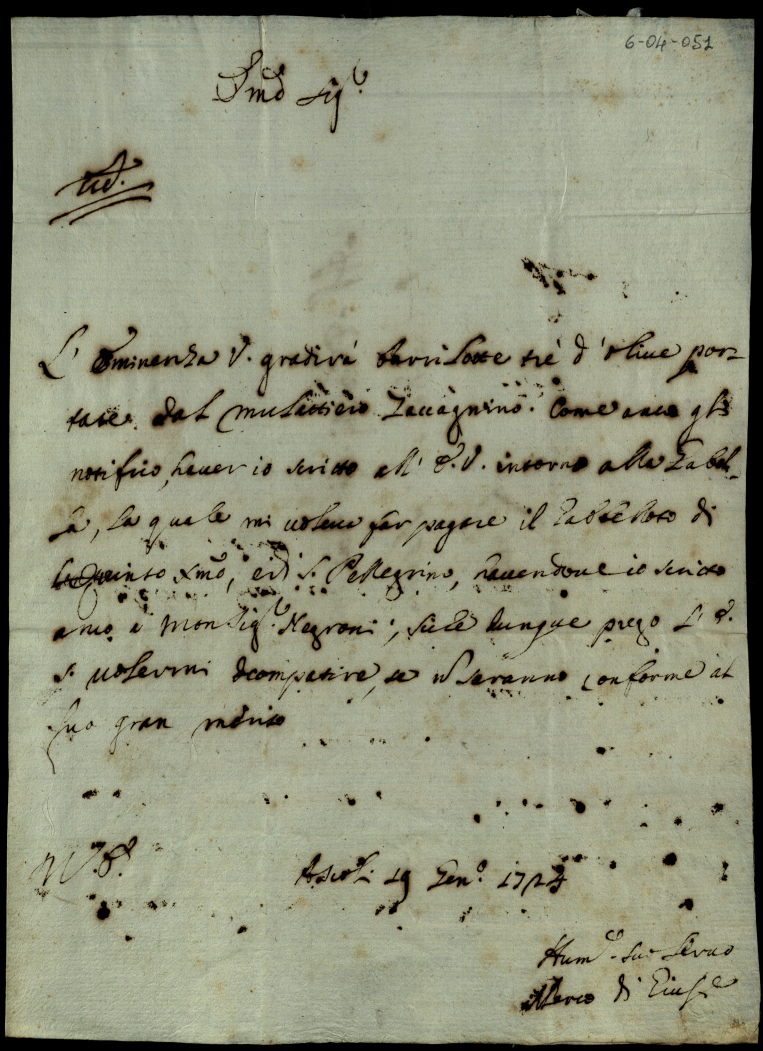 6-04-051
Em.mo Sig.r
L' Eminenza V. gradirá barrilotte tré d' olive por=
tate dal mulattiero Zaccagnino. Come anco gli
notifico, haver io scritto all' E. V. intorno alla Gabel-
la, la quale mi voleva far pagare il Gabelloto di
Quinto Xmo, e di S. Pellegrino, havendone io scritto
anco à Monsig.r Negroni; siche dunque prego L' E.
S. volermi compatire, se n saranno conforme al
suo gran merito
Ascoli 19 Gen.o 1724
Hum.o suo servo
Marco di